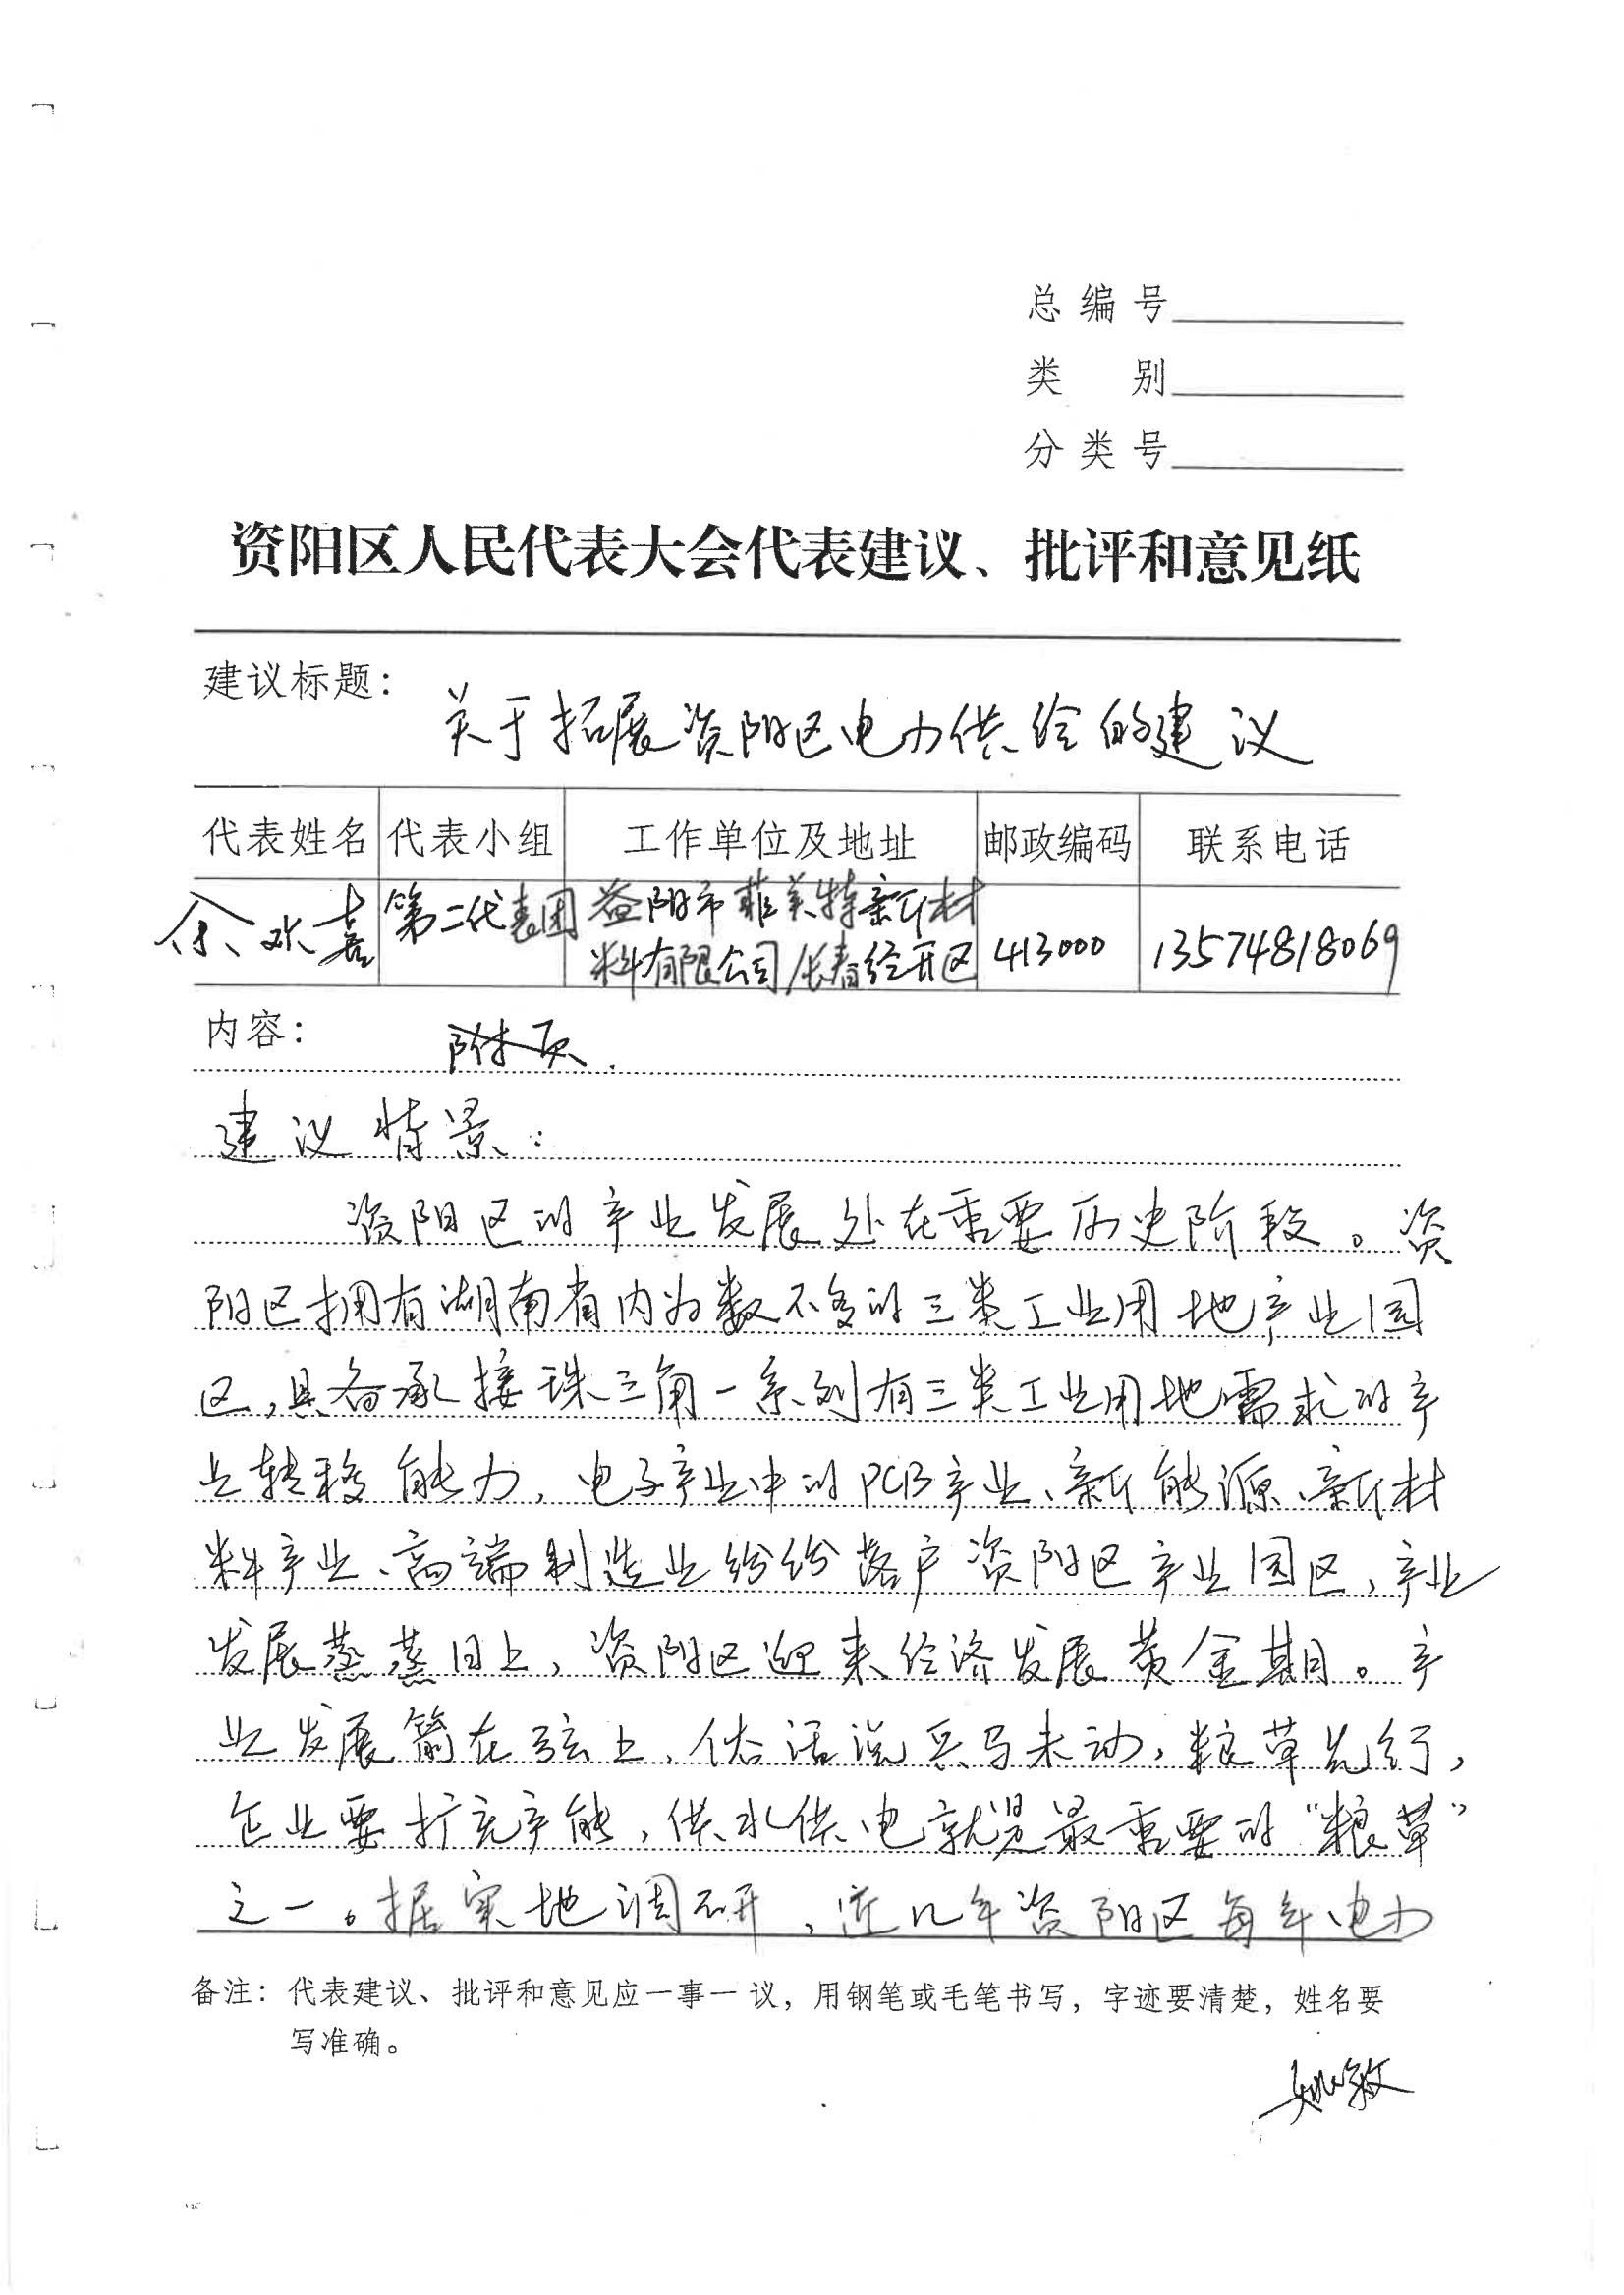 总编号
类 别
分类号
资阳区人民代表大会代表建议、批评和意见纸
建议标题：
关于拓展资阳区电力供给的建议
代表姓名 代表小组 工作单位及地址 邮政编码 联系电话
余欢喜 第二代表团 益阳市菲美特新材 413000 13574818069
料有限公司/长春经开区
内容： 附页.
建议背景：
资阳区的产业发展处在重要历史阶段。资
阳区拥有湖南省内为数不多的三类工业用地产业园
区,具备承接珠三角一系列有三类工业用地需求的产
业转移能力,电子产业中的PCB产业、新能源、新材
料产业、高端制造业纷纷落户资阳区产业园区,产业
发展蒸蒸日上,资阳区迎来经济发展黄金期。产
业发展箭在弦上,俗话说兵马未动,粮草先行,
企业要扩充产能,供水供电就是最重要的“粮草”
之一。据实地调研,近几年资阳区每年电力
备注：代表建议、批评和意见应一事一议，用钢笔或毛笔书写，字迹要清楚，姓名要
写准确。
姚敏